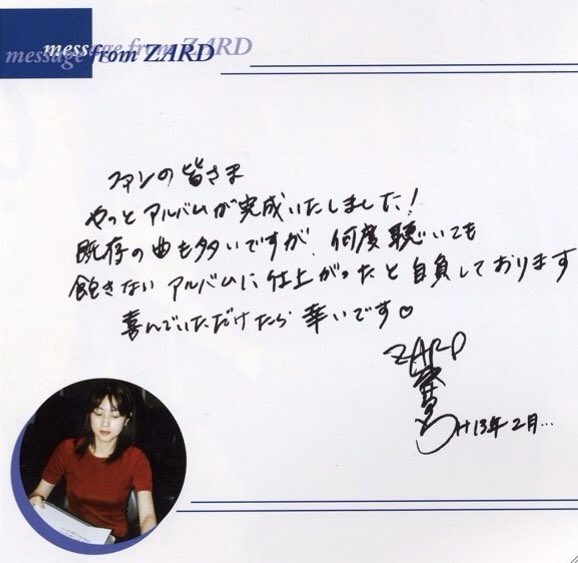 message from ZARD
message from ZARD
ファンの皆さま
やっとアルバムが完成いたしました!
既存の曲も多いですが、何度聴いても
飽きないアルバムに仕上がったと自負しております
喜んでいただけたら幸いです♡
ZARD
H13年2月...